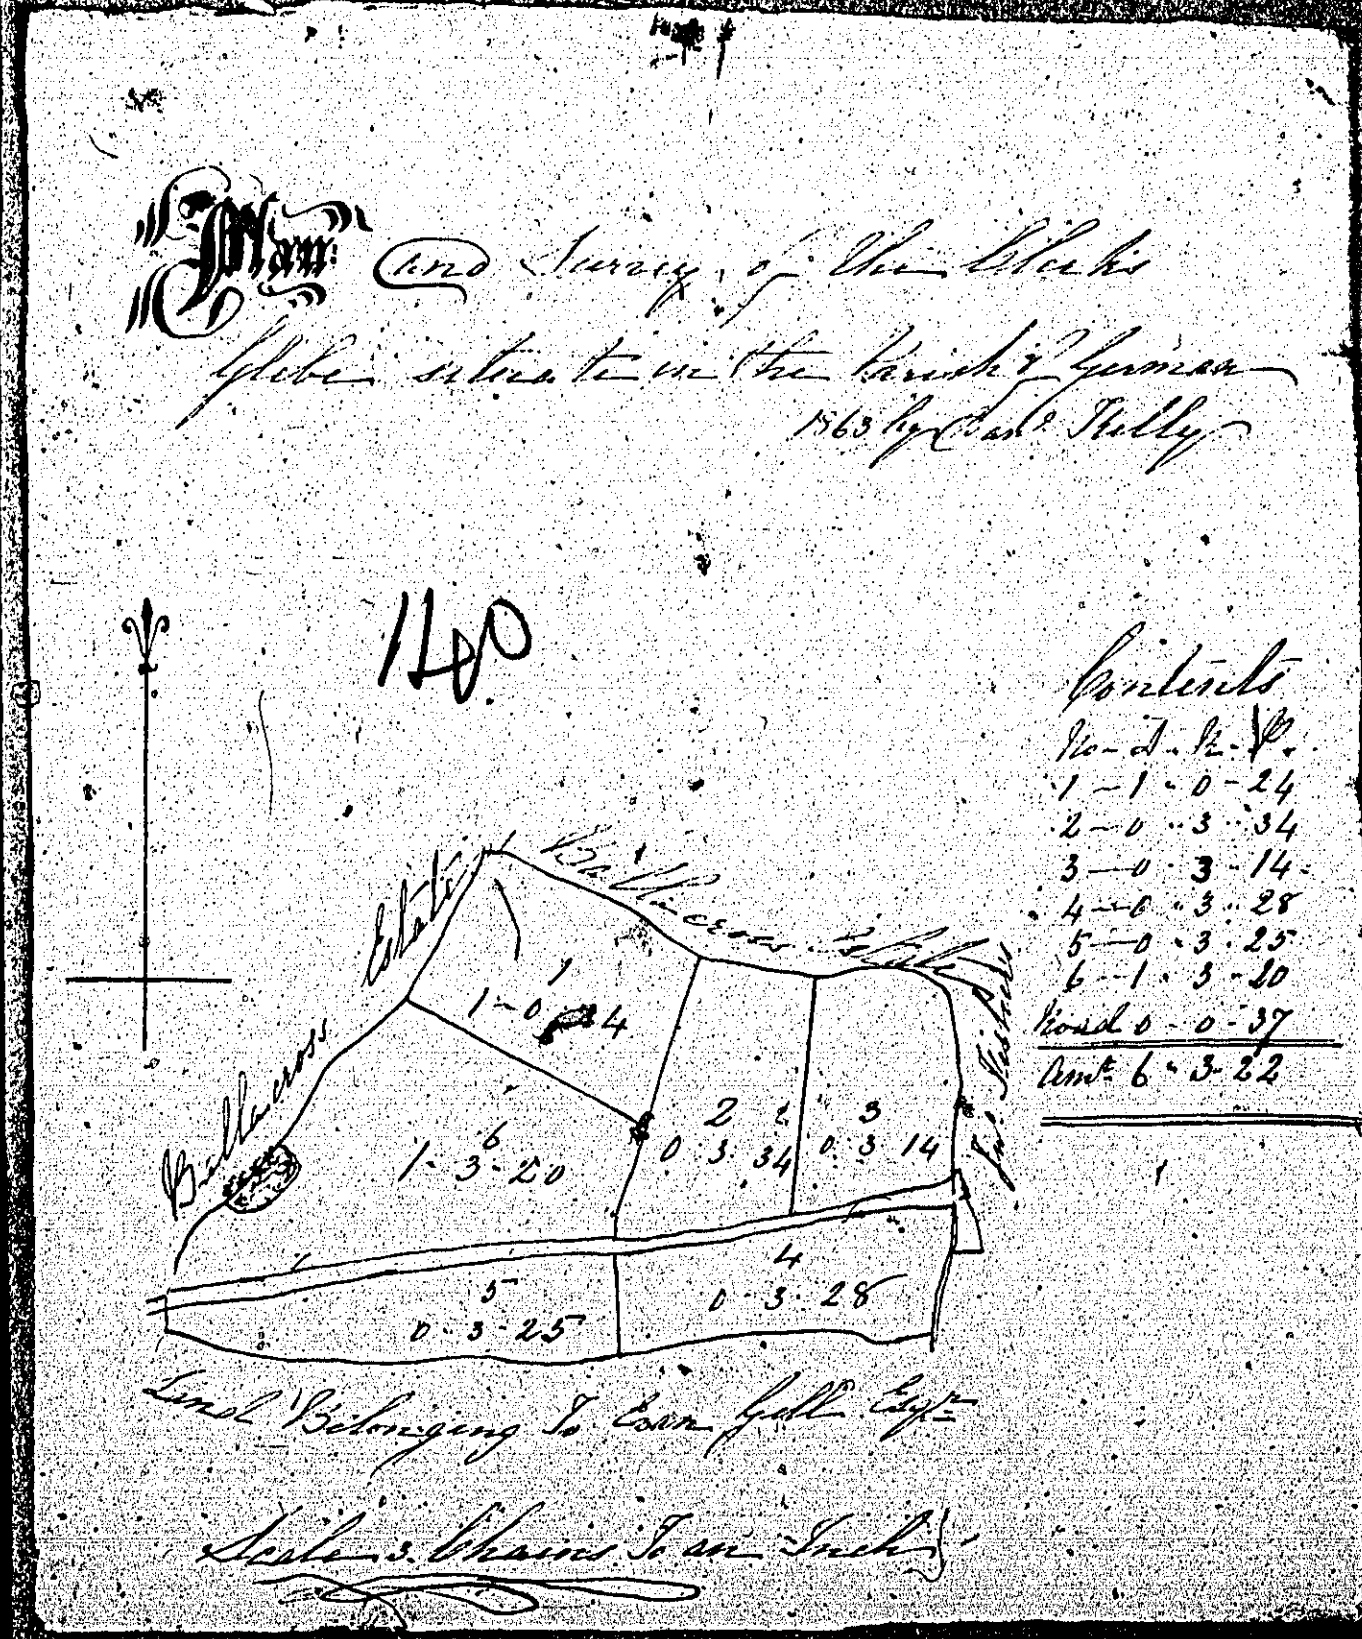 Plan and Survey of the Clerks
Glebe situate in the Parish of German
1863 by Kelly
140
Contents
No - A - R - P.
1 - 1 - 0 - 24
2 - 0 - 3 - 34
3 - 0 - 3 - 14
4 - 0 - 3 - 28
5 - 0 - 3 - 25
6 - 1 - 3 - 20
Road 0 - 0 - 37
Amt. 6 - 3 - 22
Ballacross Estate
Ballacross Estate
1
1 - 0 - 24
2
0 - 3 - 34
3
0 - 3 - 14
6
1 - 3 - 20
4
0 - 3 - 28
5
0 - 3 - 25
Land Belonging To Evan Gell Esqr
Scale 3 Chains To an Inch